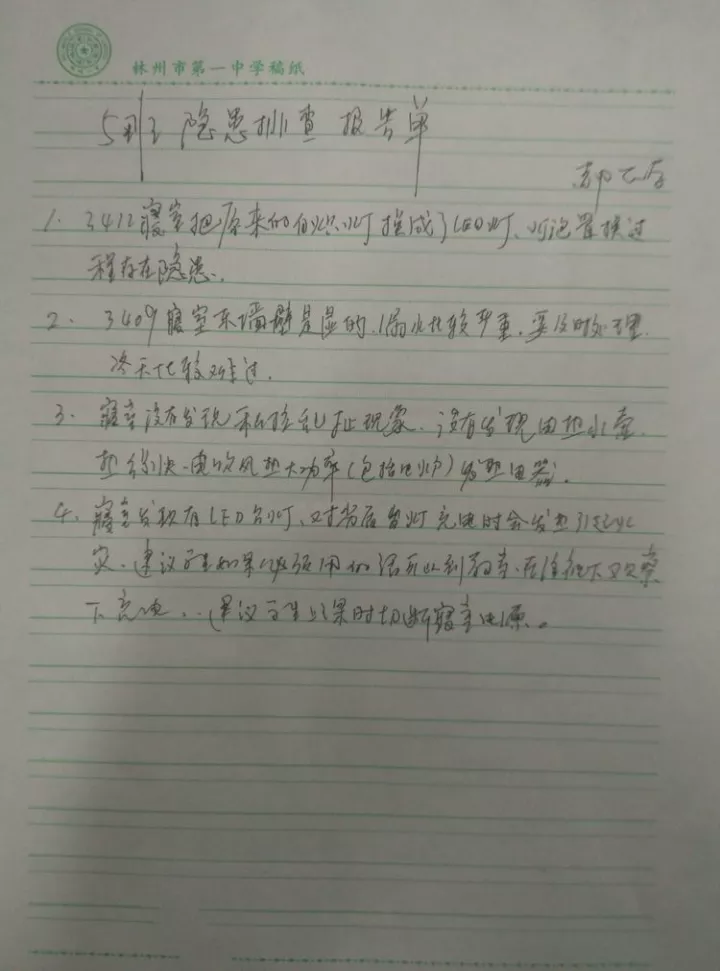 林州市第一中学稿纸
5班 隐患排查报告单
郝
1. 3412寝室把原来的白炽灯换成了LED灯、灯泡置换过
程存在隐患.
2. 3409寝室东墙壁是湿的.漏水比较严重.要及时处理.
冬天比较难过.
3. 寝室没有发现私拉乱扯现象.没有发现电热水壶.
热得快.电吹风热大功率(包括电炉)发热电器.
4. 寝室发现有LED台灯、对书后台灯充电时会发热引起火
灾.建议学生如果必须用的话可以到教室.在
下充电..建议学生上课时切断寝室电源。